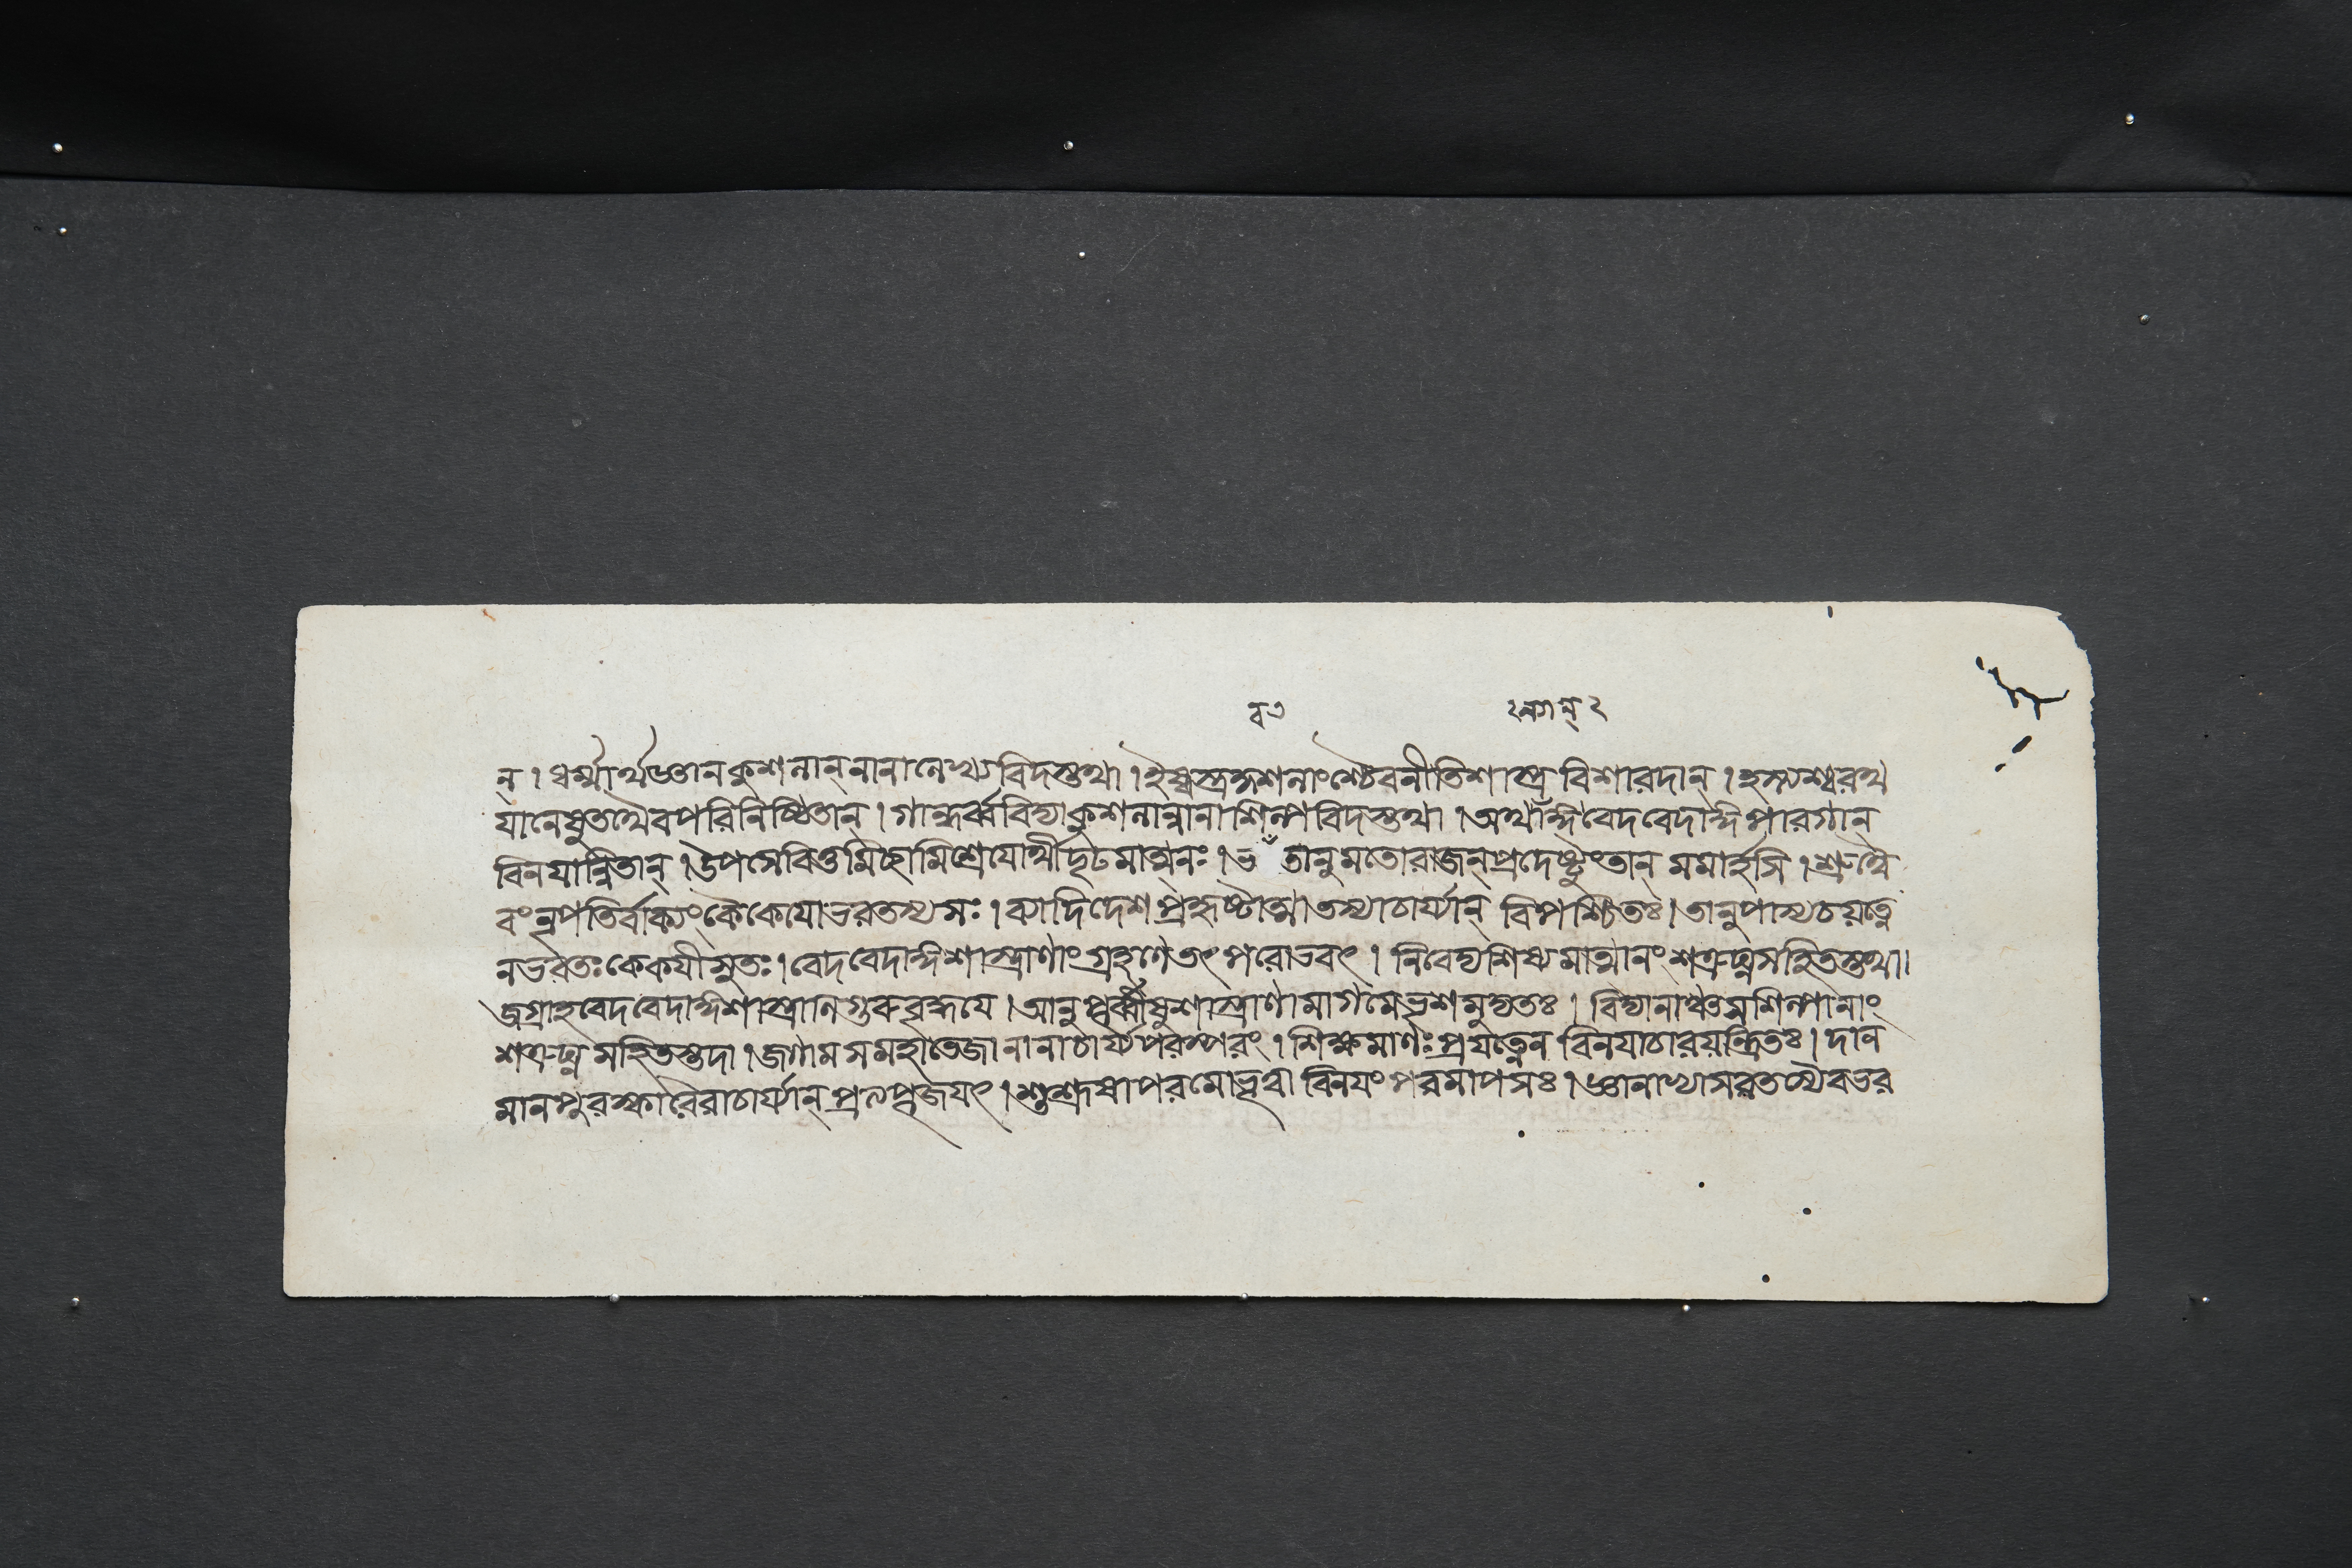 বাং ২ নগান্ ২
ন্। ধর্ম্মার্থজ্ঞানকুশলান্ নানালেখ্যবিদস্তথা। ইষ্বস্ত্রকুশলাংশ্চৈব নীতিশাস্ত্রবিশারদান্। হস্ত্যশ্বরথ
যানেষু তথৈব পরিনিষ্ঠিতান্। গান্ধর্ব্ববিদ্যাকুশলান্নানাশিল্পবিদস্তথা। অর্থাঙ্গবেদবেদাঙ্গপারগান্
বিনয়ান্বিতান্। উপসেবিতুমিচ্ছামি শ্রেয়োর্থী দৃঢমাত্মনঃ। ভবতানুমতো রাজন্ প্রদেষ্টুং তান্ মমার্হসি। শ্রুত্বৈ
বং নৃপতির্বাক্যং কৈকেয়ো ভরতস্য সঃ। ব্যাদিদেশ প্রহৃষ্টাত্মা তস্যাচার্য্যান্ বিপশ্চিতঃ। তানুপাস্য চ যত্নে
ন ভরতঃ কেকয়ীসুতঃ। বেদবেদাঙ্গশাস্ত্রাণাং গ্রহণে তৎপরোভবৎ। নিবেদ্য শিষ্যমাত্মানং শত্রুঘ্নসহিতস্তথা।
জগ্রাহ বেদবেদাঙ্গশাস্ত্রাণি গুরুবৃদ্ধয়ে। আনুপূর্ব্বীষু শাস্ত্রাণামাগমে ভৃশমুদ্যতঃ। বিদ্যানাঞ্চ স শিল্পানাং
শত্রুঘ্নসহিতস্তদা। জগাম স মহাতেজা নানাচার্য্যপরম্পরাং। শিক্ষমাণঃ প্রযত্নেন বিনয়াচারযন্ত্রিতঃ। দান
মানপুরস্কারৈরাচার্য্যান্ প্রত্যপূজয়ৎ। শুশ্রূষাপরমো ভূত্বা বিনয়ং পরমাপ সঃ। জ্ঞানাভ্যাসরতশ্চৈব ভর